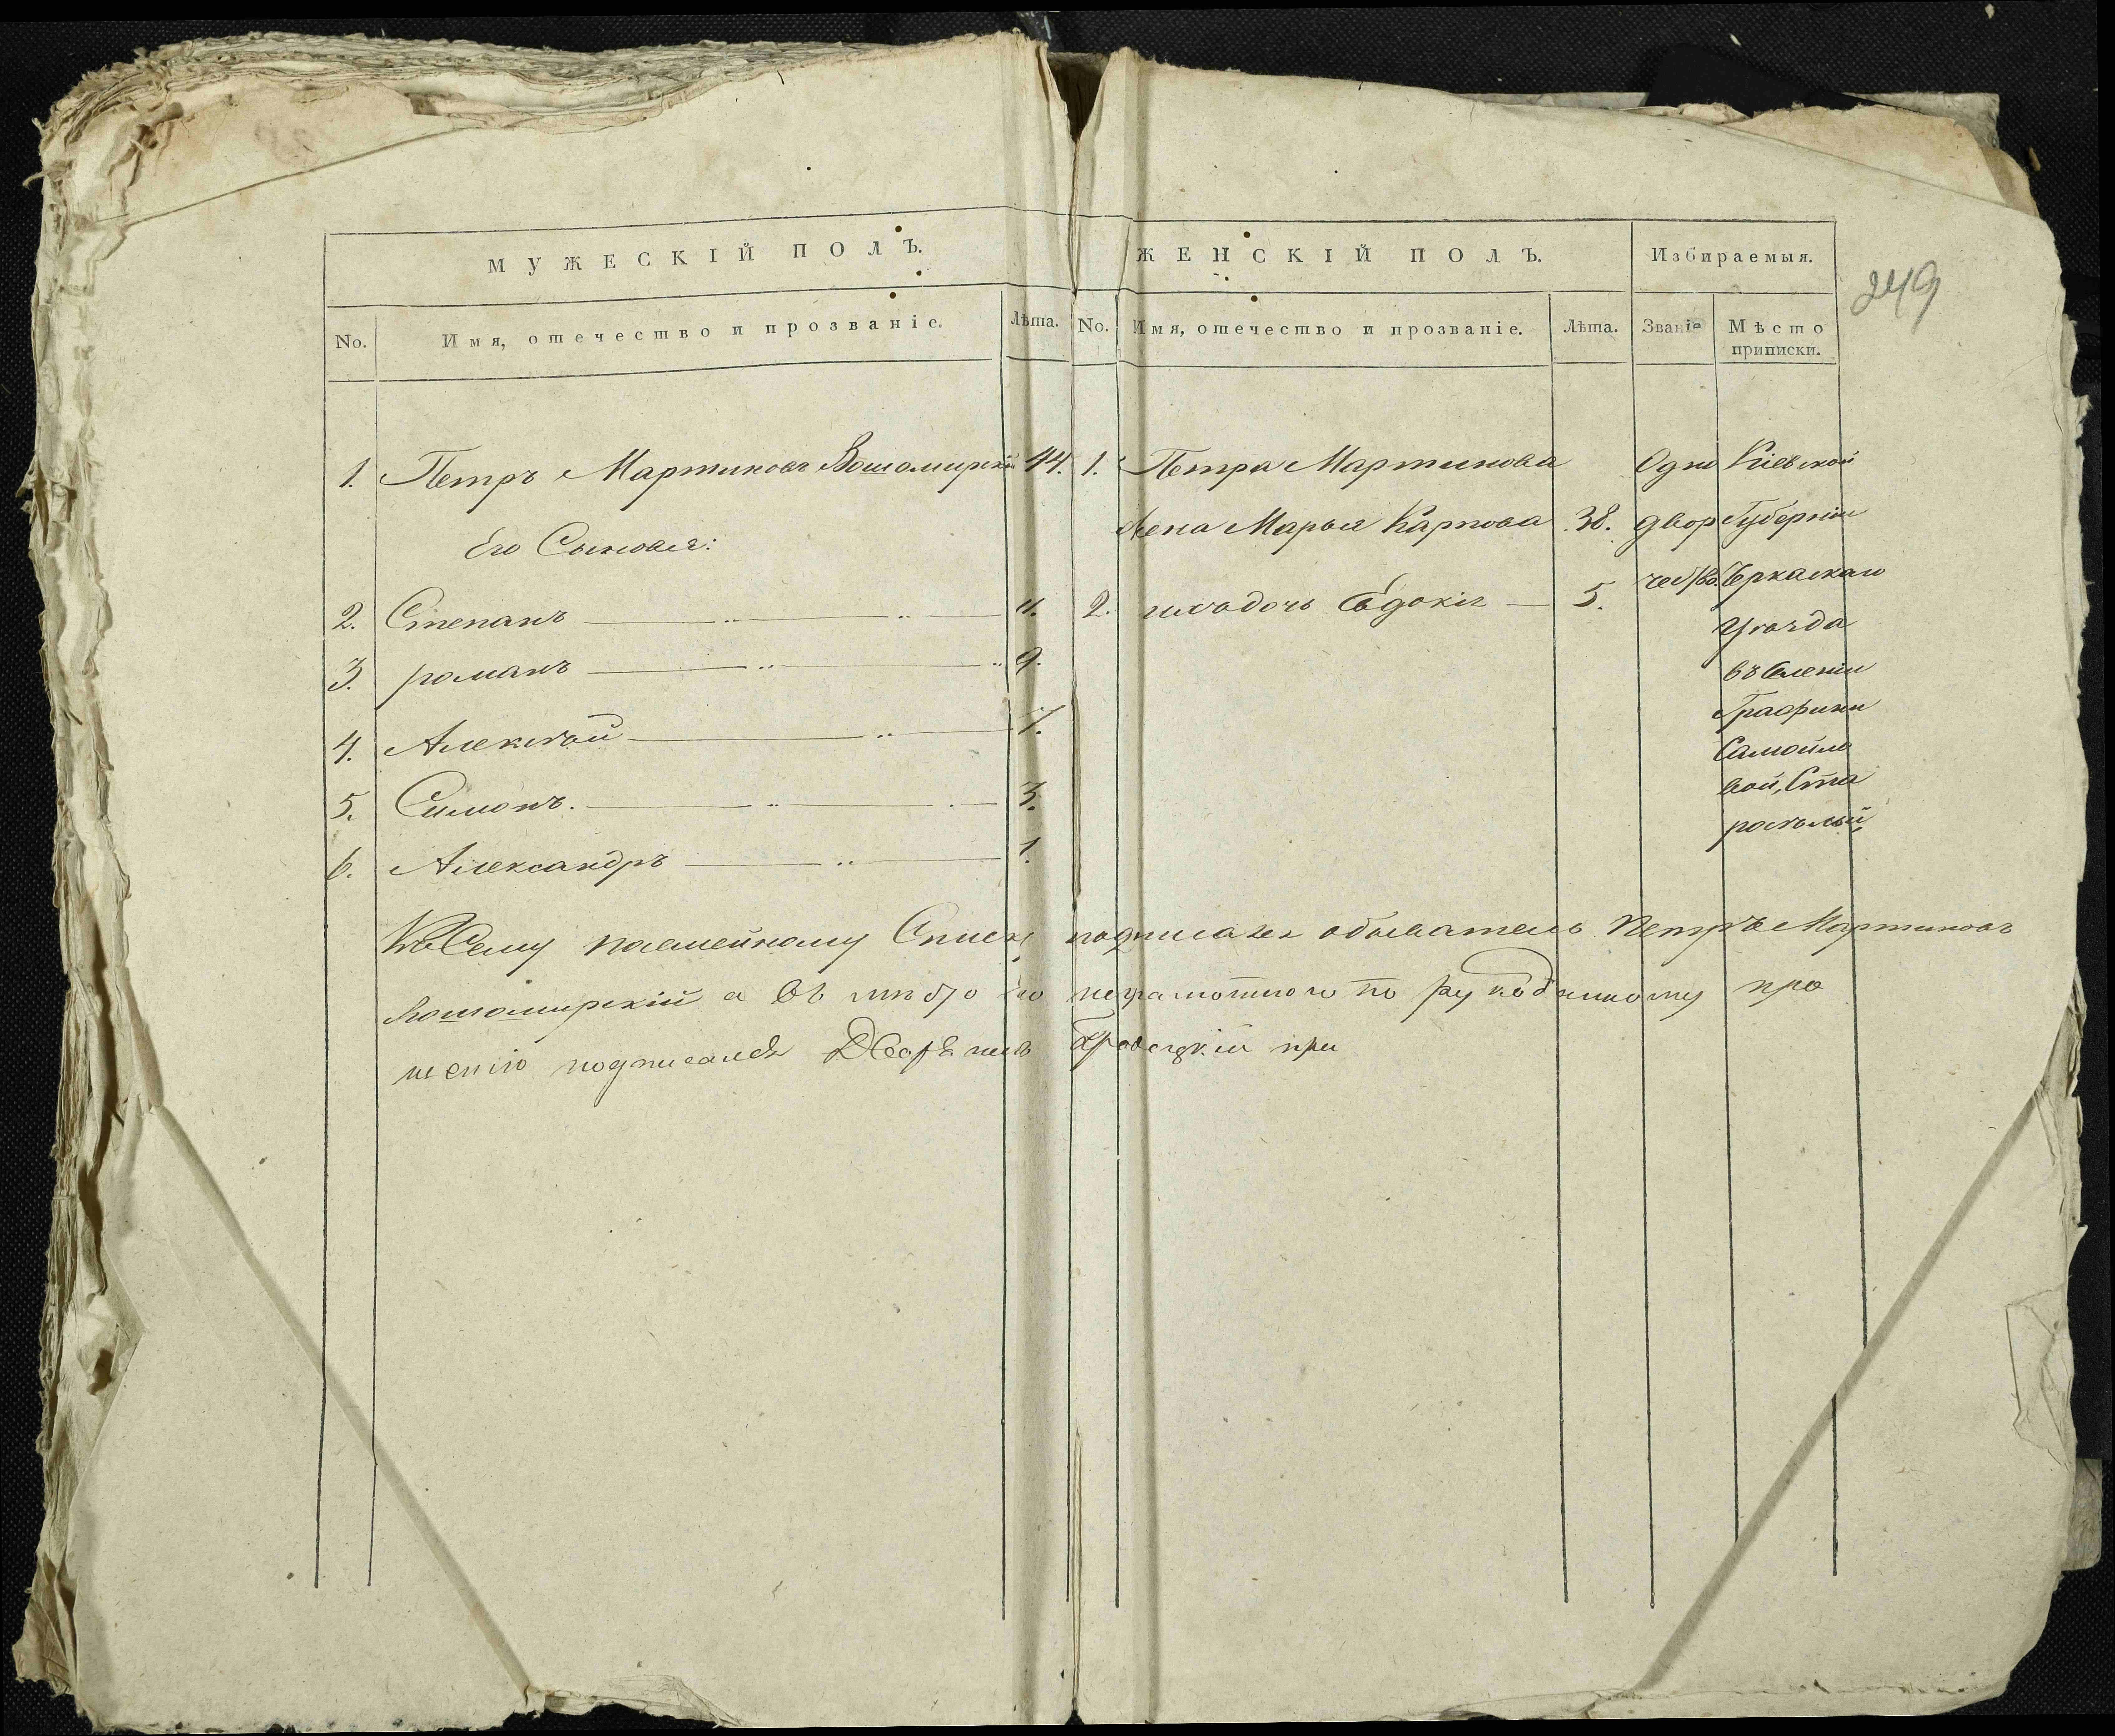 МУЖЕСКІЙ ПОЛЪ.
No. Имя, отечество и прозваніе. Лѣта.
1. Петръ Мартиновъ 44.
Его Сыновья:
2. Степанъ 11.
3. романъ 9.
4. Алексѣй 7.
5. Симонъ. 3.
6. Александръ 1.
ЖЕНСКІЙ ПОЛЪ. Избираемыя.
249
No. Имя, отечество и прозваніе. Лѣта. Званіе Мѣсто
приписки.
1. Петра Мартинова
жена Марья Карпова 38.
2. Евдокія 5.
Одно
двор
Кіевской
Губерніи
Черкаскаго
уѣзда
въ имении
Графини
Самойло
вой, Ста
роселъи
Къ Сему посмейному Списку подписалъ обыватель Петръ Мартиновъ
а въ мѣсто его неграмотного по рукоданному про
шенію подписался Дворянинъ при